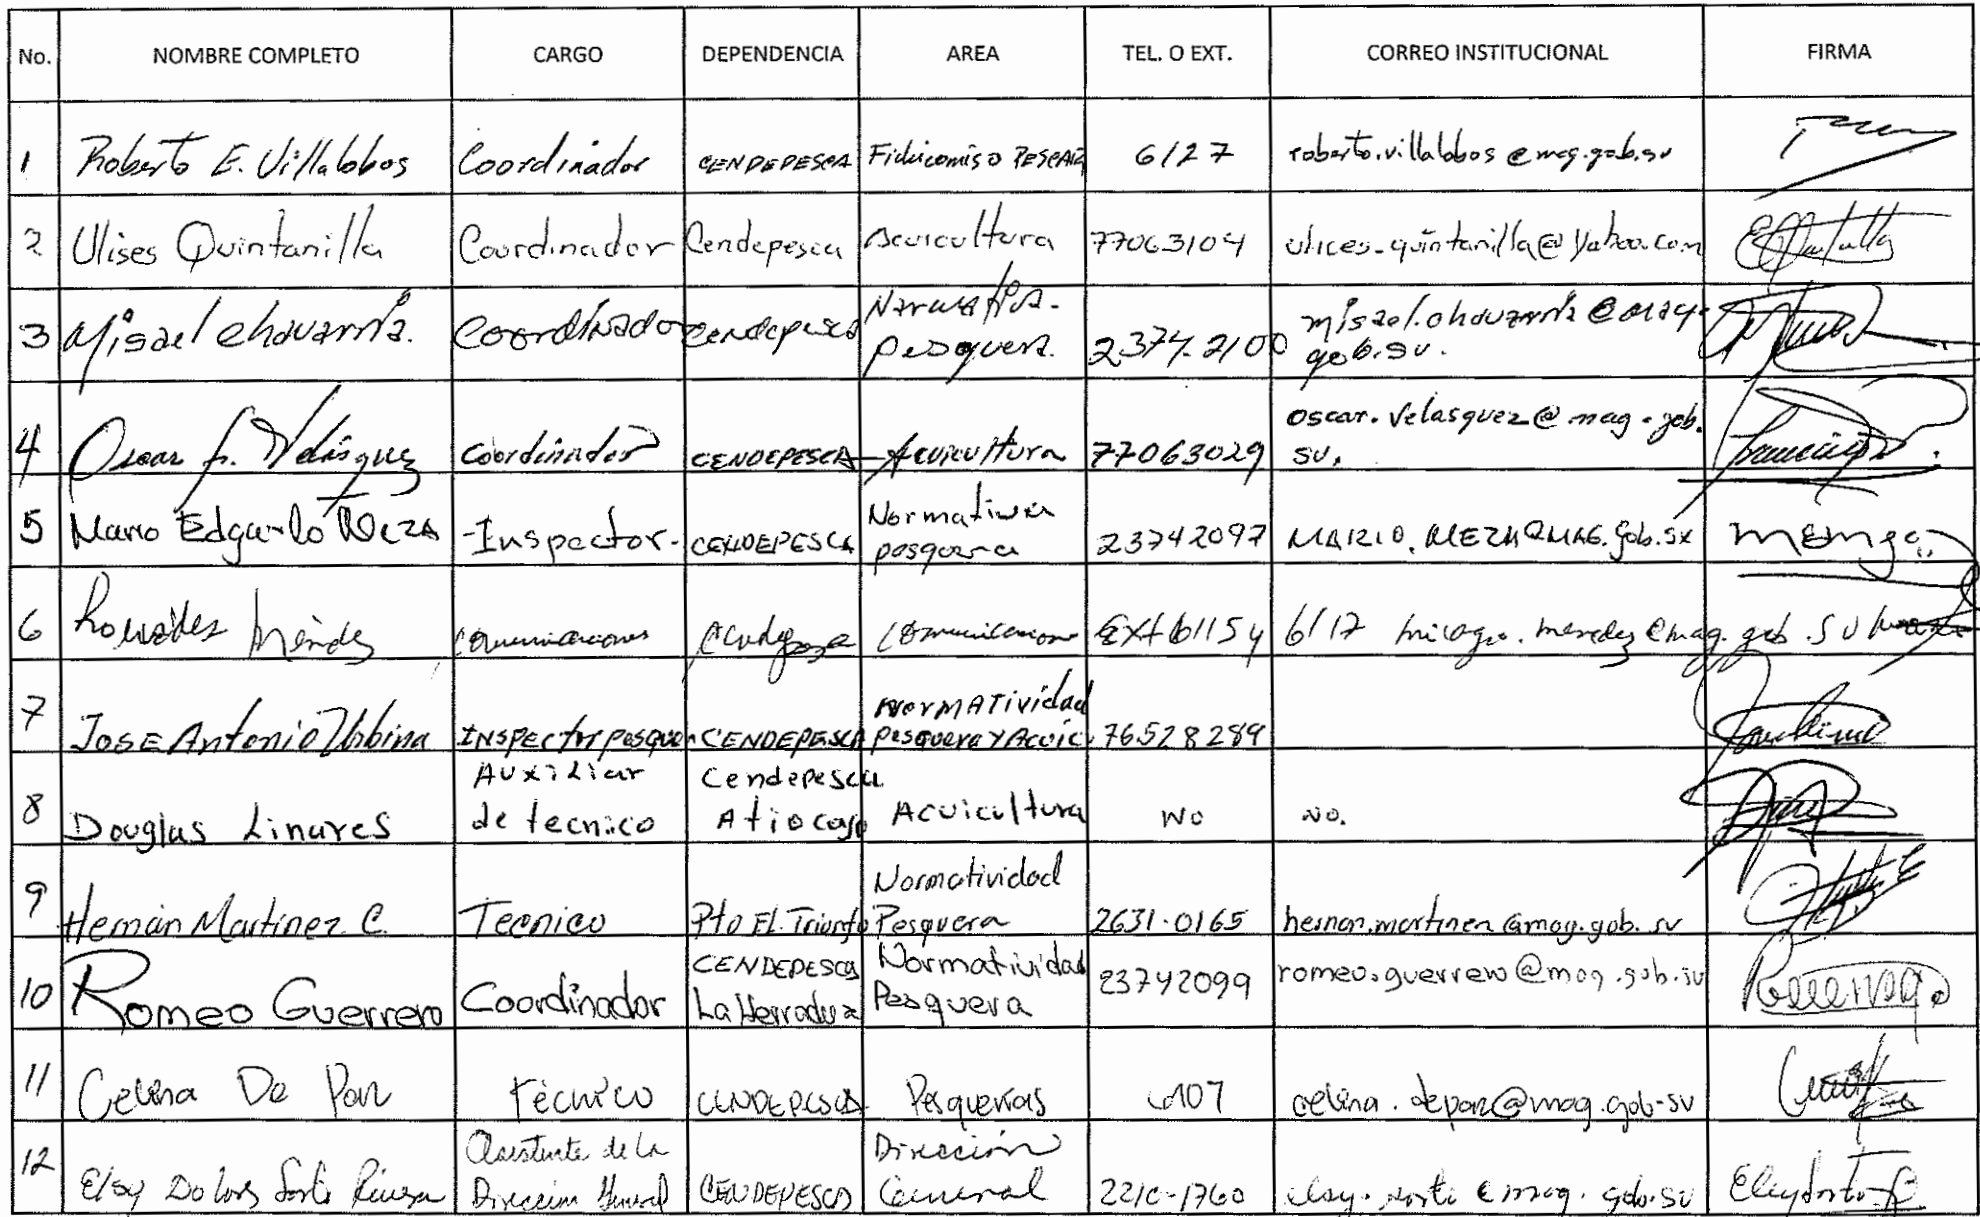 No. NOMBRE COMPLETO CARGO DEPENDENCIA AREA TEL. O EXT. CORREO INSTITUCIONAL FIRMA
1 Roberto E. Villalobos Coordinador CENDEPESCA Fidicomiso PESCAR 6127 roberto.villalobos@mag.gob.sv
2 Ulises Quintanilla Coordinador Cendepesca Acuicultura 77063104 ulices-quintanilla@yahoo.com
3 Misael Chavarria. Coordinador Cendepesca Normativa- pesquera. 2374-2100 misael.chavarria@mag. gob.sv.
4 Oscar f. Velásquez Coordinador CENDEPESCA Acuicultura 77063029 oscar.velasquez@mag.gob. sv.
5 Mario Edgardo Meza -Inspector- CENDEPESCA Normativa pesquera 23742097 MARIO.MEZA@MAG.gob.sv
6 Méndez comunicaciones Cendepesca comunicaciones 6117 milagro.mendez@mag.gob.sv
7 JOSE Antonio Urbina INSPECtor pesquer CENDEPESCA NorMATividad PesqueraYAcuic. 76528289
8 Douglas Linares Auxiliar de tecnico Cendepesca Atiocoyo Acuicultura No No.
9 Hernán Martínez C. Tecnico Pto El Triunfo Normatividad Pesquera 2631-0165 hernan.martinez@mag.gob.sv
10 Romeo Guerrero Coordinador CENDEPESCA La Herradura Normatividad Pesquera 23742099 romeo.guerrero@mag.gob.sv
11 Celina De Paz Técnico CENDEPESCA Pesquerías 6107 celina.depaz@mag.gob-sv
12 Elsy Dolores Sorto Rivera Asistente de la Dirección General CENDEPESCA Dirección General 2210-1760 elsy.sorto@mag.gob.sv